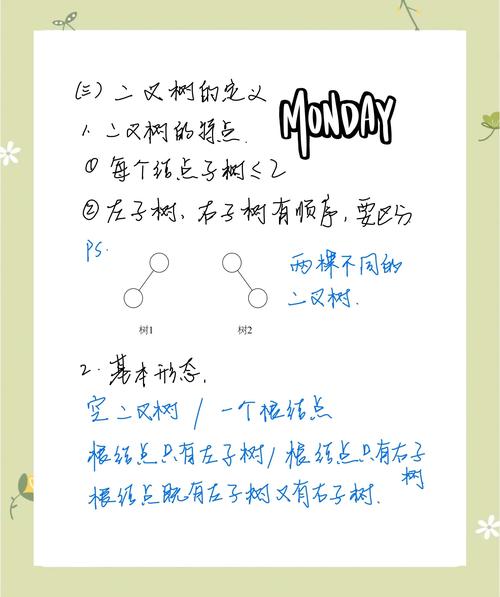 (三) 二叉树的定义
MONDAY
1. 二叉树的特点.
① 每个结点子树≤2
② 左子树、右子树有顺序,要区分
PS.
两棵不同的
二叉树.
树1
树2
2. 基本形态.
空二叉树 / 一个根结点
根结点只有左子树 / 根结点只有右子
树
根结点既有左子树又有右子树.